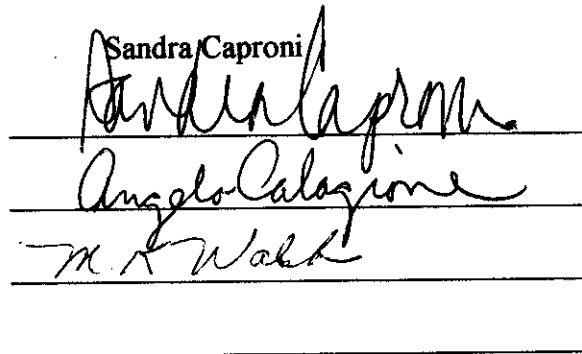 Sandra Caproni
Sandra Caproni
Angelo Calagione
M. K Walsh